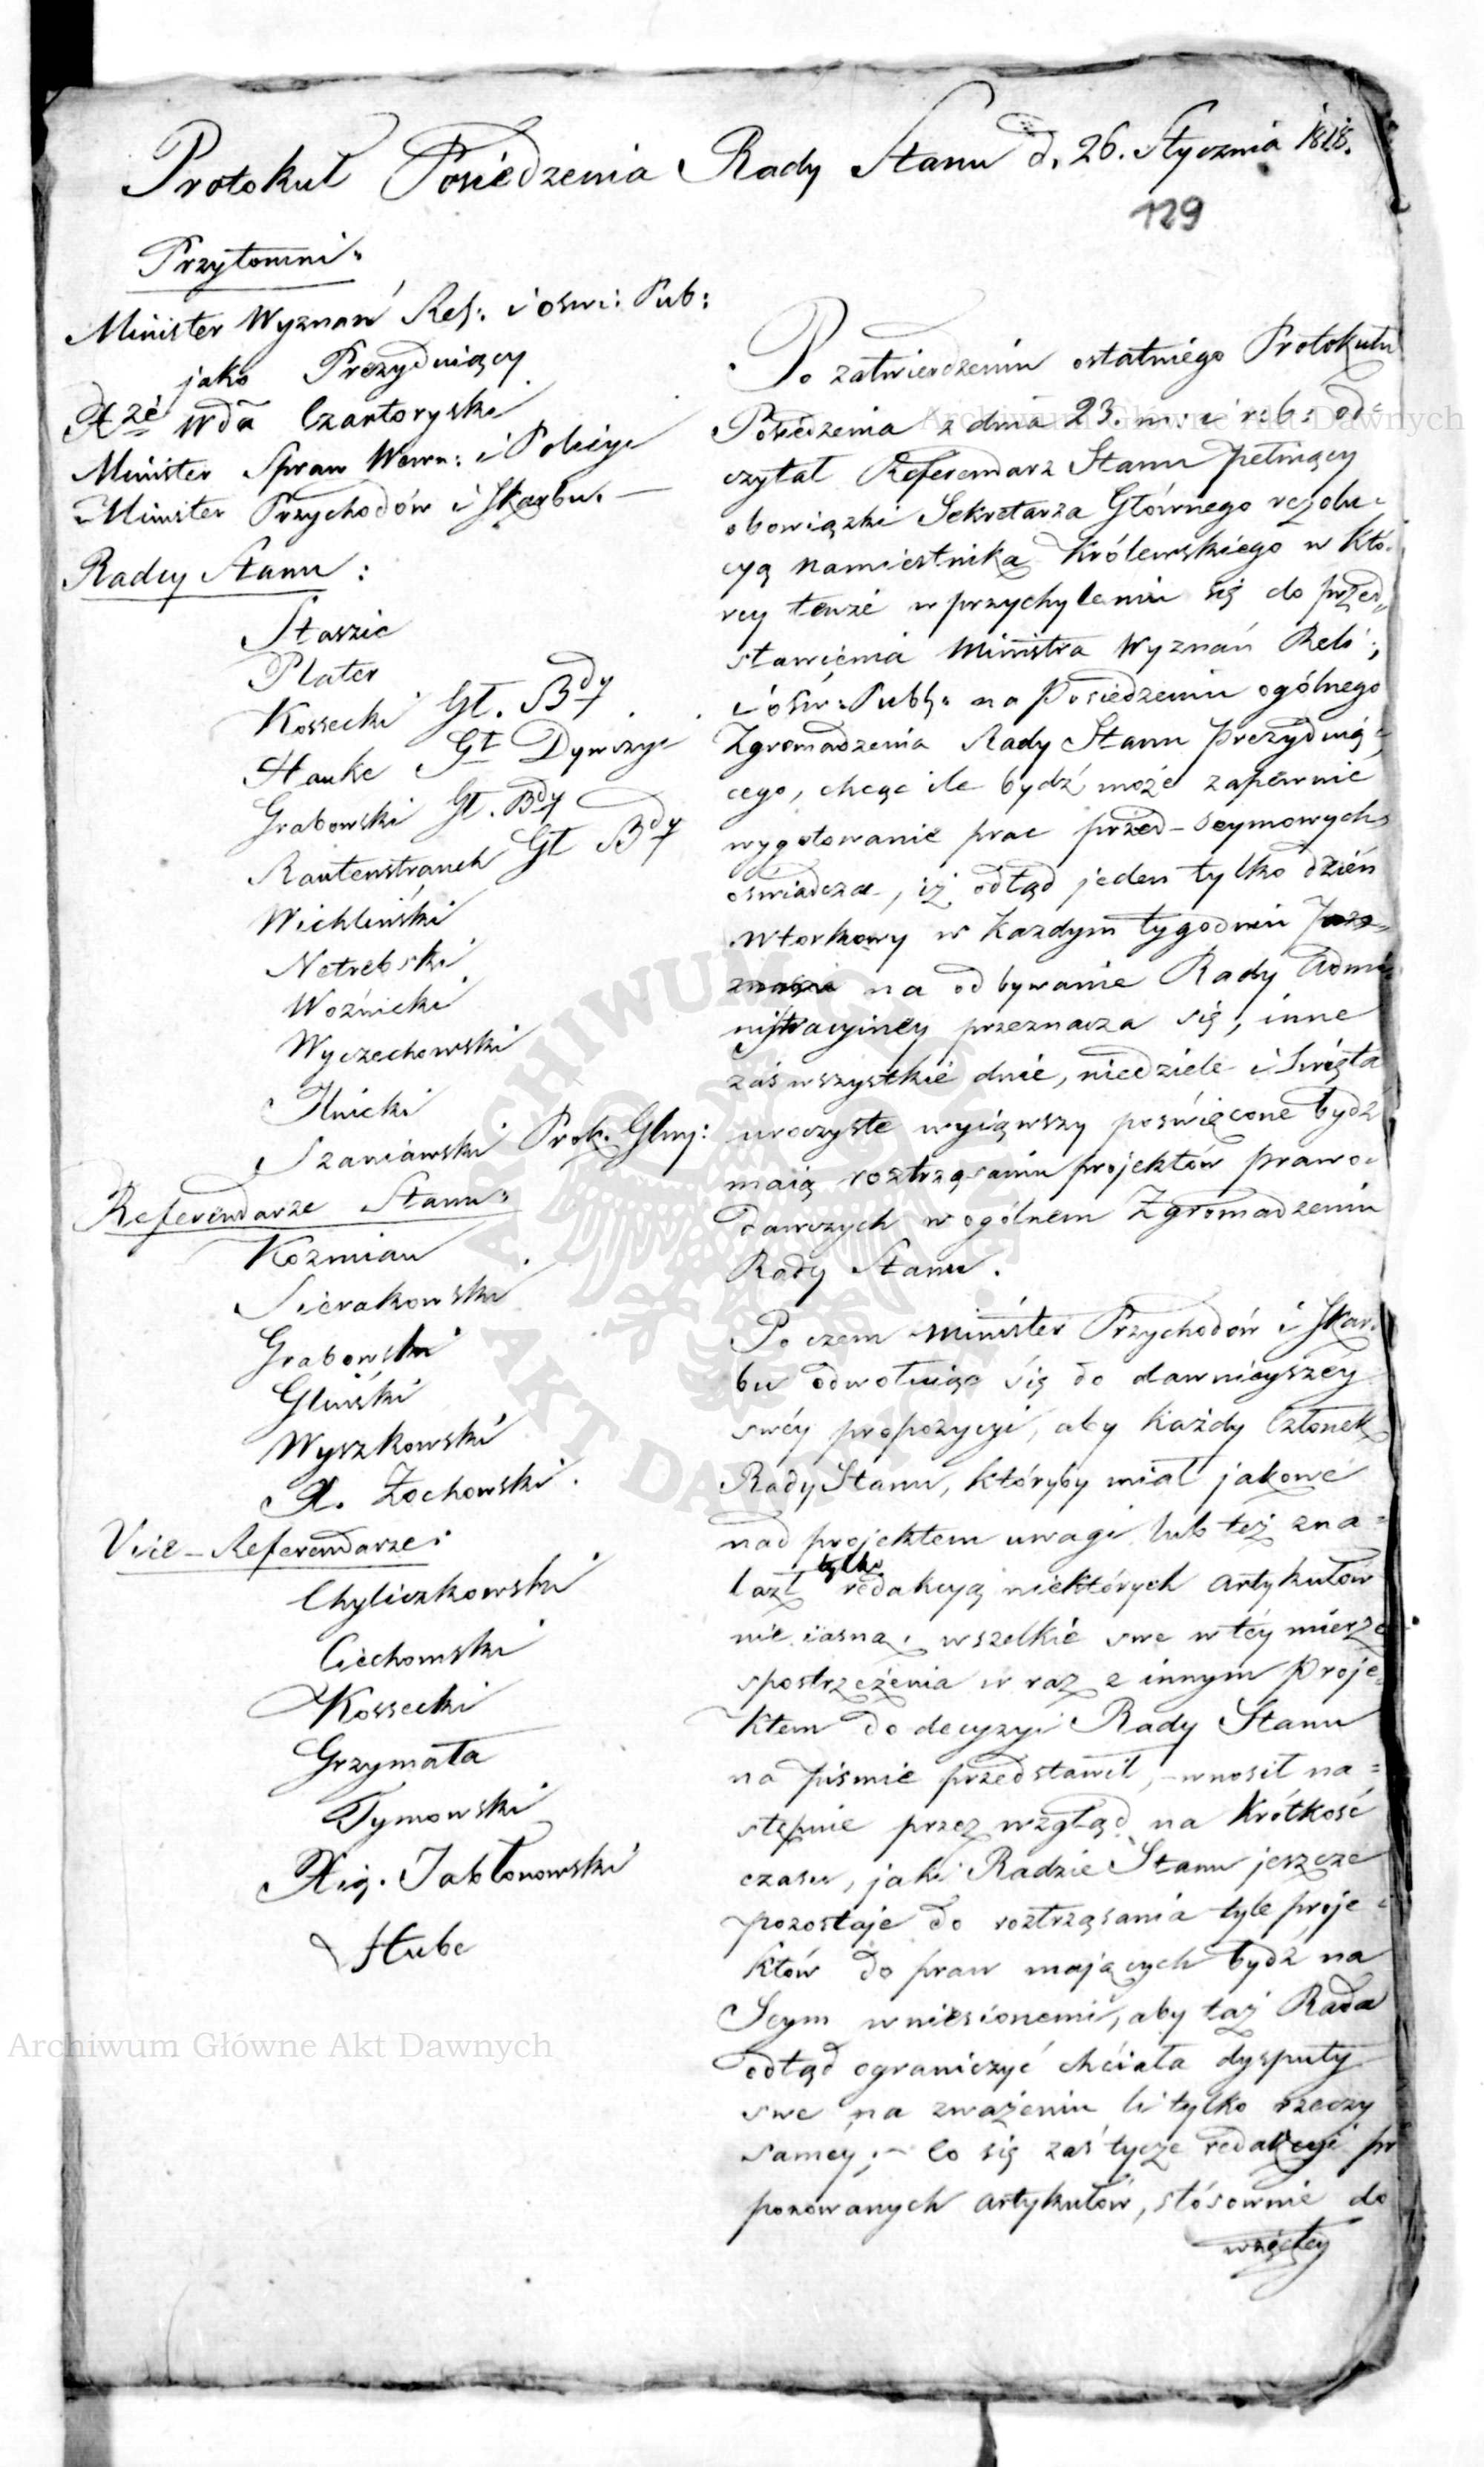 Protokuł Posiedzenia Rady Stanu d. 26. Stycznia 1818.
129
Przytomni:
Minister Wyznań Rel: i oświ: Pub:
jako Prezyduiący
Xzę Wda Czartoryski
Minister Spraw Wewn: i Policyi
Minister Przychodów i Skarbu. —
Radcy Stanu:
Staszic
Plater
Kossecki Gł. Bdy
Hauke Gł Dywizyi
Grabowski Gł. Bdy
Rautenstrauch Gł Bdy
Wichliński
Netrebski
Woźnicki
Wyczechowski
Ilnicki
Szaniawski Prok. Glny:
Referendarze Stanu:
Kozmian
Sierakowski
Grabowski
Gliński
Wyszkowski
X. Żochowski.
Vice-Referendarze:
Chyliczkowski
Ciechomski
Kossecki
Grzymała
Tymowski
Xią. Jabłonowski
Hube
Po zatwierdzeniu ostatniego Protokułu
Posiedzenia z dnia 23. m. i r. b: od=
czytał Referendarz Stanu pełniący
obowiązki Sekretarza Głównego rezolu=
cyą Namiestnika Królewskiego w któ=
rey tenże w przychyleniu się do przed=
stawienia Ministra Wyznań Reli:
i ośw: Publ: na Posiedzeniu ogólnego
Zgromadzenia Rady Stanu prezyduią=
cego, chcąc ile bydź może zapewnić
wygotowanie prac przed-seymowych
oświadcza, iż odtąd jeden tylko dzień
wtorkowy w każdym tygodniu
na odbywanie Rady Admi=
nistracyiney przeznacza się, inne
zaś wszystkie dnie, niedziele i Święta
uroczyste wyiąwszy poświęcone bydź
maią roztrząsaniu projektów prawo=
dawczych w ogólnem Zgromadzeniu
Rady Stanu.
Poczem Minister Przychodów i Skar=
bu odwołuiąc się do dawnieyszey
swéy propozycyi, aby każdy Członek
Rady Stanu, któryby miał jakowe
nad projektem uwagi lub też zna=
lazł tylko redakcyą niektórych artykułów
nie iasną, wszelkie swe w téy mierze
spostrzeżenia wraz z innym proje=
ktem do decyzyi Rady Stanu
na piśmie przedstawił, – wnosił na=
stępnie przez wzgląd na krótkość
czasu, jaki Radzie Stanu jeszcze
pozostaje do roztrząsania tyle proje=
któw do praw mających bydź na
Seym wniesionemi, aby taż Rada
odtąd ograniczyć chciała dysputy
swe na zważeniu li tylko rzeczy
saméy; – Co się zaś tycze redakcyi pr
ponowanych artykułów, stósownie do
wziętey
Archiwum Główne Akt Dawnych
Archiwum Główne Akt Dawnych
ARCHIWUM GŁÓWNE AKT DAWNYCH